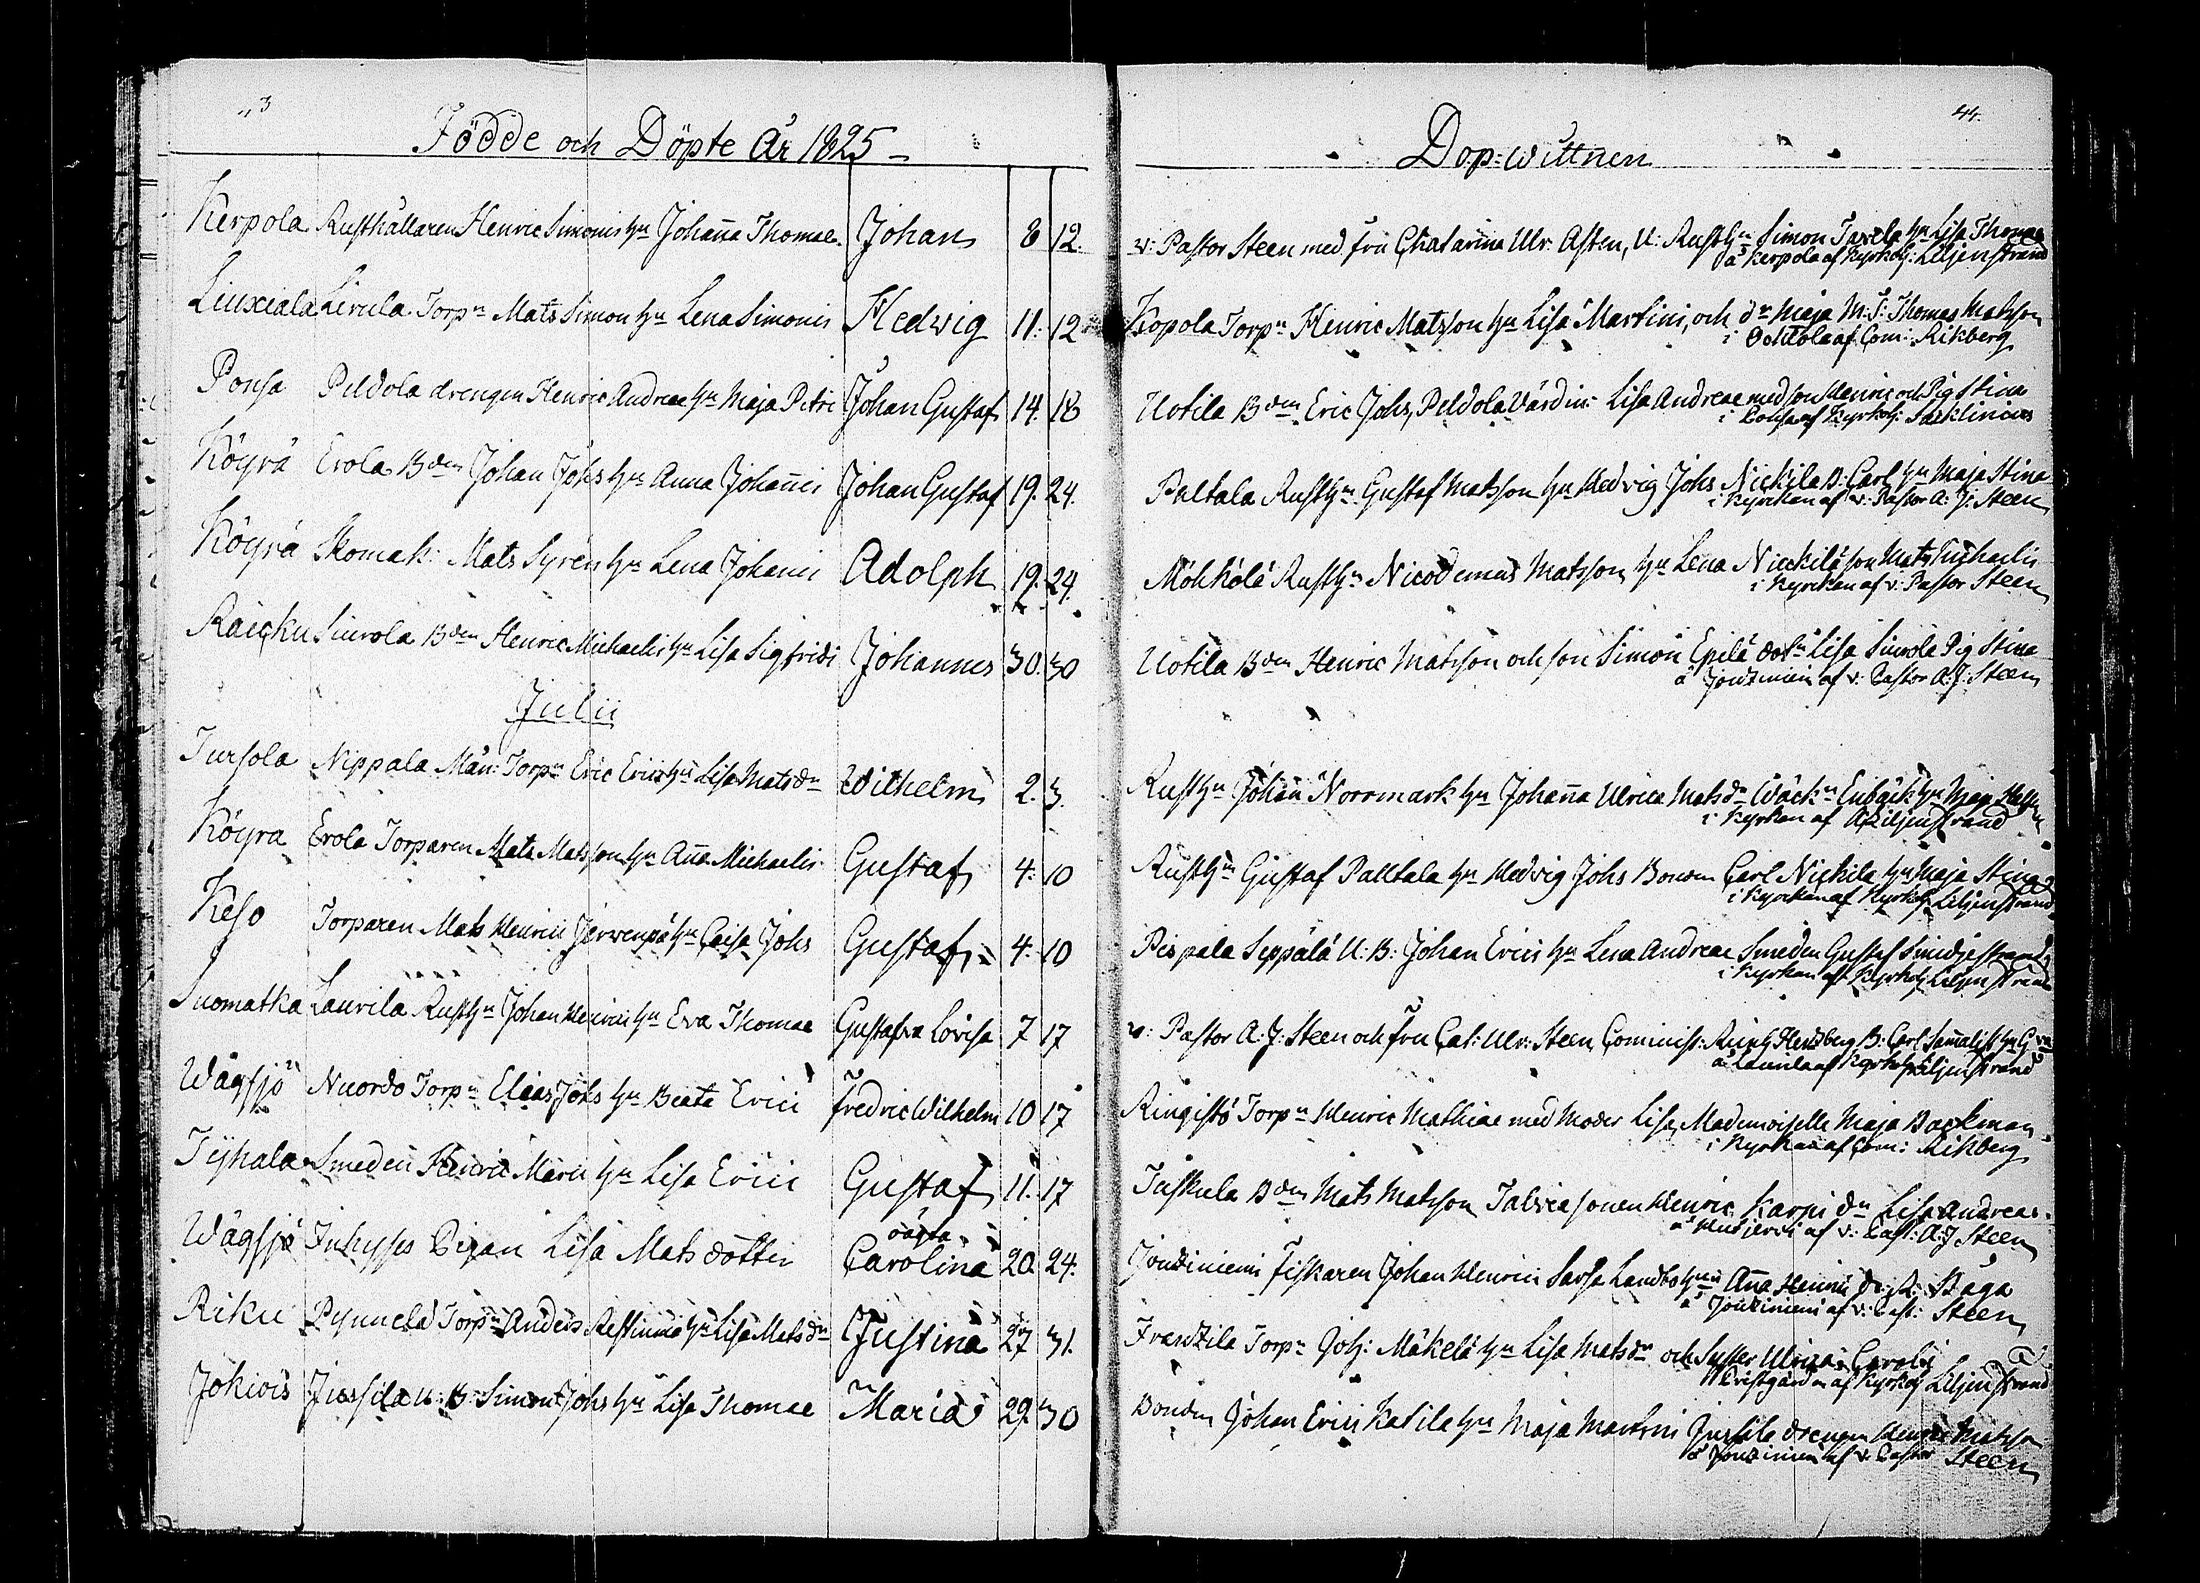 43
Födde och Döpte År 1825
Kerpola Rusthållaren Henric Simonis hu Johanna Thomae Johan 8 12.
Liuxiala Lirula Torpn Mats Simon hu Lena Simonis Hedwig 11. 12
Ponsa Peldola drengen Henric Andreae hu Maja Petri Johan Gustaf 14. 18
Köyrä Erola Bden Johan Johs hu Anna Johannis Johan Gustaf 19. 24.
Köyrä Skomak: Mats Syren hu Lena Johanis Adolph 19. 24.
Raicku Siurola Bden Henric Michaelis hu Lisa Sigfridi Johannes 30. 30
Julii
Tursola Nippala Mån: Torpn Eric Erici hu Lisa Mats dn Wilhelm 2. 3.
Köyra Erola Torparen Mats Matsson hu Aña Michaelis Gustaf 4. 10
Keso Torparen Mats Henrici Jerwenpä hu Caisa Johs Gustaf 4. 10
Suomatka Laurila Rusthn Johan Henrici hu Eva Thomae Gustafva Lovisa 7 17
Wägsjö Nuordo Torpn Elias Johs hu Beata Erici Fredric Wilhelm 10 17
Tyhala Smeden Henric hu Lisa Erici Gustaf 11. 17
Wägsjö Inhyses Pigan Lisa Mats dotter oägta Carolina 20. 24.
Riku Torpn Anders hu Lisa Mats dn Justina 27 31.
Jokiois Jussila U: B: Simon Johs hu Lisa Thomae Maria 29. 30
44.
Dop-Wittnen
v: Pastor Steen med fru Chatarina Ulr: Asten, U: Rusthn Simon hu Lisa Thomae
å Kerpola af Kyrkoh: Liljenstrand
Kopola Torpn Henric Matsson hu Lisa Martini, och dn Maja M: S: Thomas Matsson
i af Com: Rikberg
Uotila Bden Eric Johs, Peldola Värdin: Lisa Andreae med son Henric och Pig Stina
i af Kyrkoh:
Paltala Rusthn Gustaf Matsson hu Hedvig Johs Nickila B: Carl hu Maja Stina
i Kyrckan af v: Pastor A: J: Steen
Mölkölä Rusthn Nicodemus Matsson hu Lena Nickilä son Mats Michaelis
i Kyrckan af v: Pastor Steen
Uotila Bden Henric Matsson och son Simon Epilä dotn Lisa Siurola Pig Stina
å Jouziniemi af v: Pastor A: J: Steen
Rusthn Johan Norrmark hu Johanna Ulrica Mats dn hu Maja
i Kyrkan af Liljenstrand
Rusthn Gustaf Palltala hu Hedvig Johs Bonden Carl Nickila hu Maja Stina
i Kyrckan af Kyrkoh: Liljenstrand
Pispala Seppälä U: B: Johan Erici hu Lena Andreae Smeden Gustaf Smidjestrand
i Kyrkan af Kyrkoh: Liljenstrand
v: Pastor A: J: Steen och fru Cat: Ulr: Steen, Cominist: Hertzberg B: Carl hu
å Laurila af Kyrkoh: Liljenstrand
Ringistö Torpn Henric Mathiae med Moder Lisa, Mademoiselle Maja Backman
i Kyrkan af Com: Rikberg
Juskula Bden Mats Matsson Talvia sonen Henric Karpi dn Lisa Andreae
å af v: Past: A: J Steen
Jouziniemi Fiskaren Johan Henrici Sarsa Landbo hun Aña Henrici
å Jouziniemi af v: Past: Steen
Franzila Torpn Joh: Mäkelä hu Lisa Mats dn och Syster Ulrica Caroli
i Prestgården af Kyrkoh Liljenstrand
Bonden Johan Erici Katila hu Maja Martini Jussila drengen Henric Matsson
å Jouziniemi af v: Pastor Steen